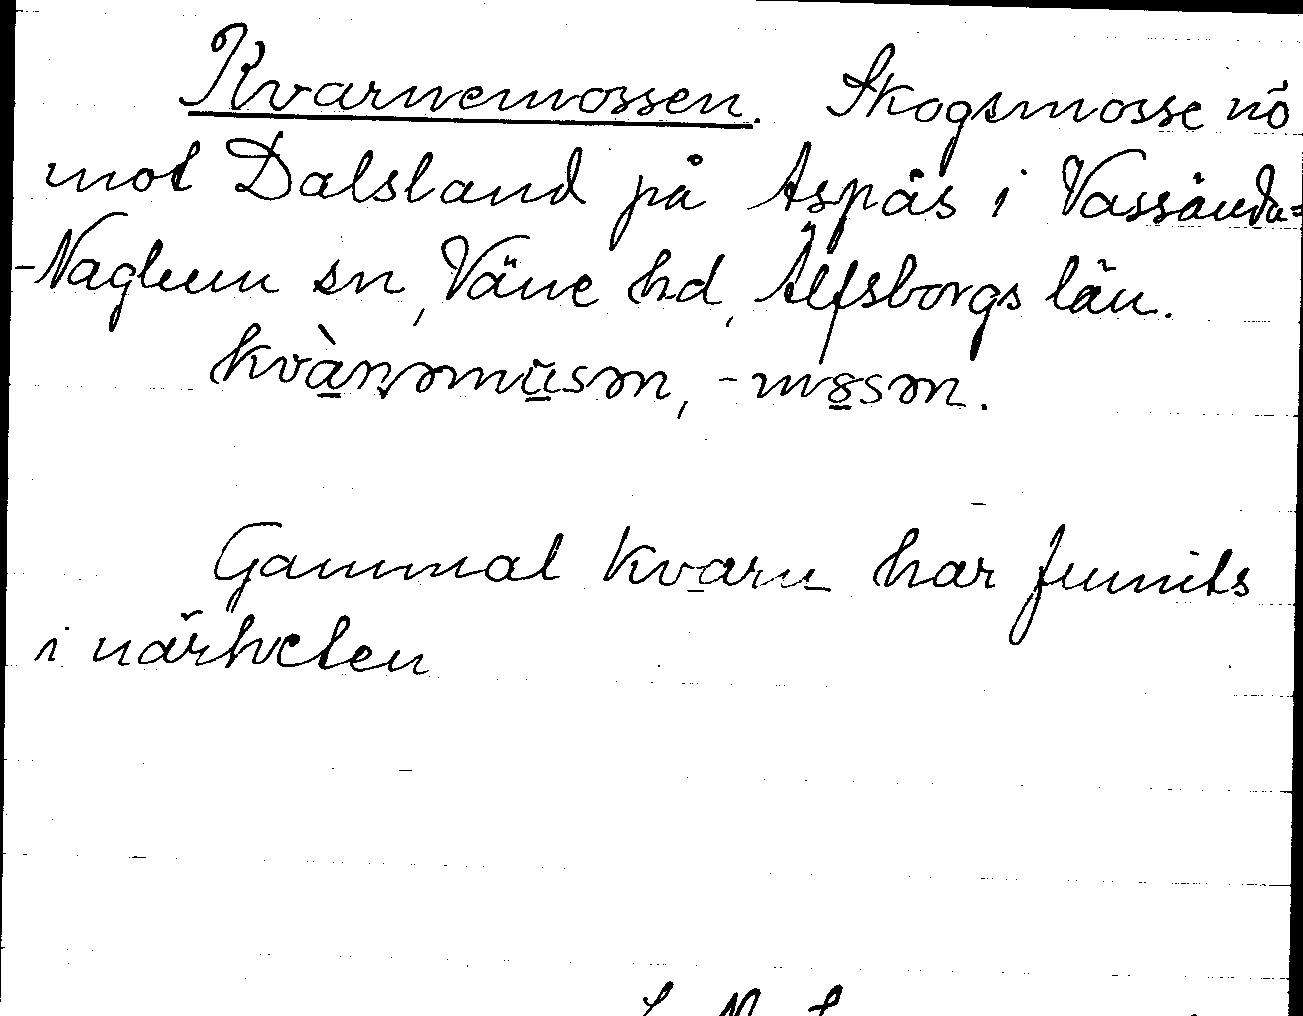 Kvarnemossen. Skogsmosse nö
mot Dalsland på Aspås i Vassända=
-Naglum sn, Väne hd, Älfsborgs län.
kvàṇəmūsən, -mȣsən.
Gammal kvarn har funnits
i närheten